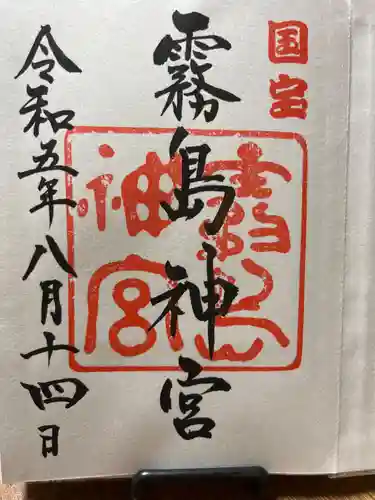 国宝
霧島神宮
霧島神宮
令和五年八月十四日